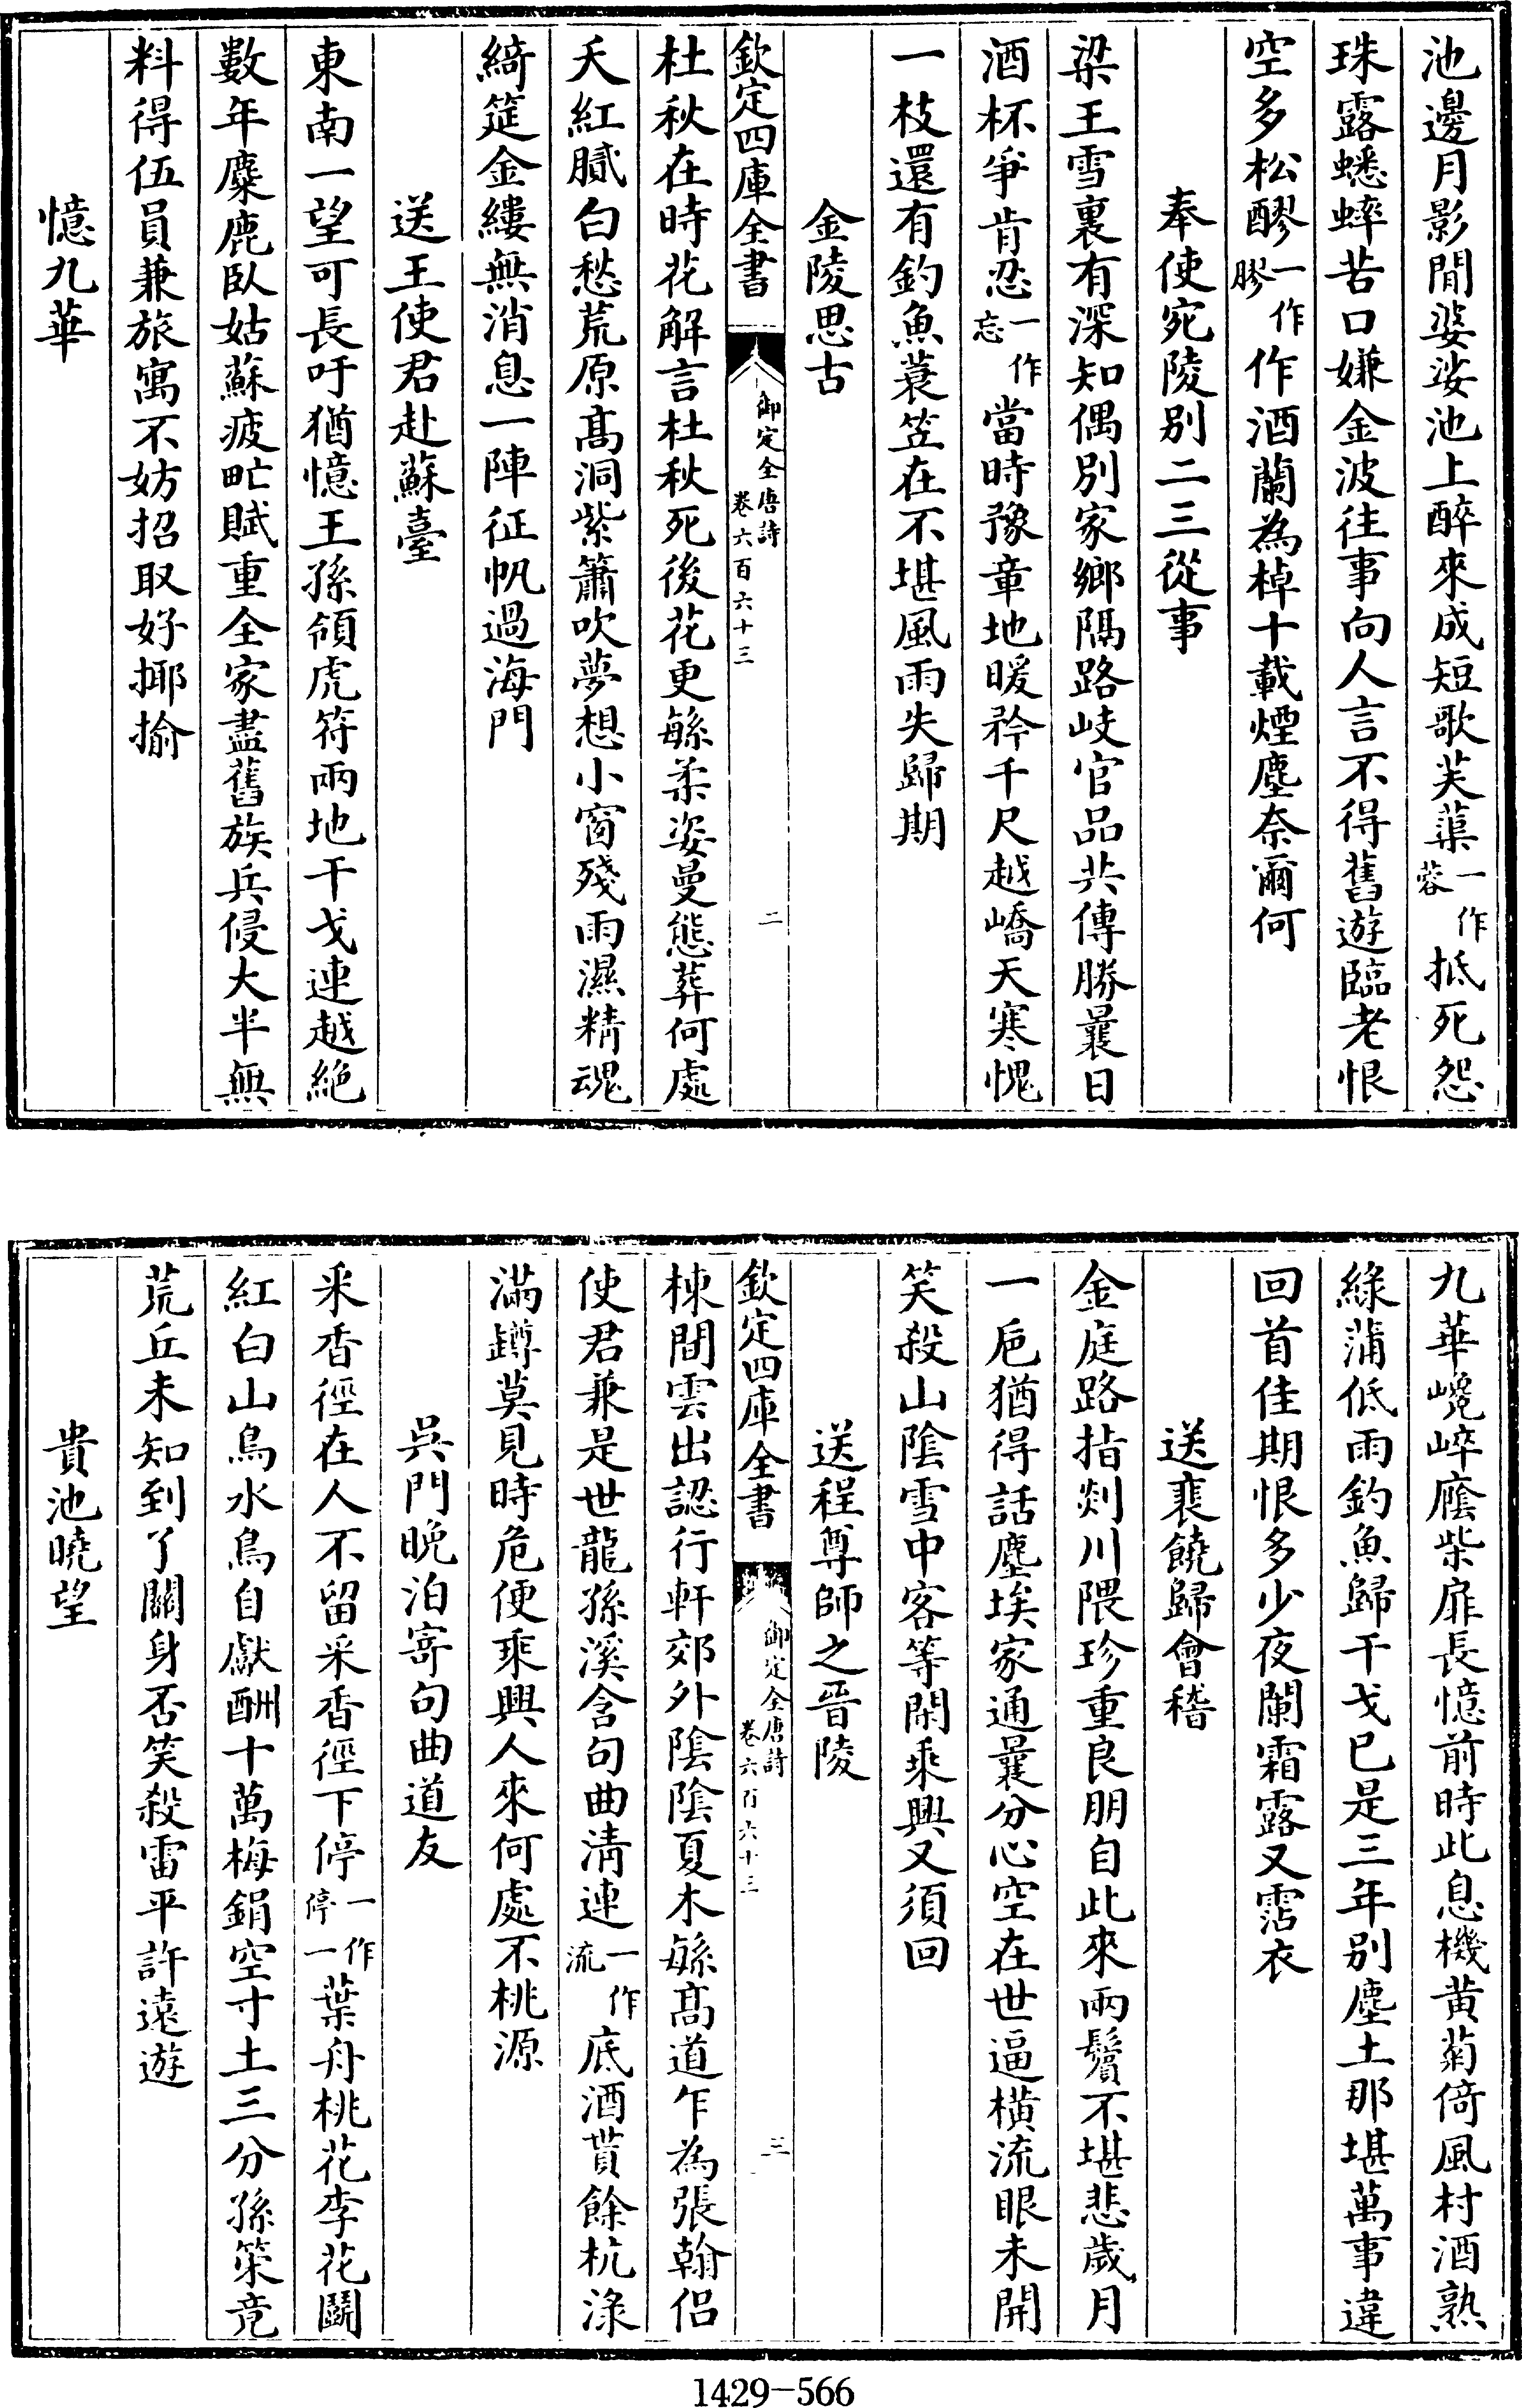 池邊月影閒婆娑池上醉來成短歌芙蕖一作蓉抵死怨
珠露蟋蟀苦口嫌金波往事向人言不得舊遊臨老恨
空多松醪一作膠作酒蘭為棹十載煙塵奈爾何
奉使宛陵別二三從事
梁王雪裏有深知偶別家鄉隔路岐官品共傳勝曩日
酒杯爭肯忍一作忘當時豫章地暖矜千尺越嶠天寒愧
一枝還有釣魚蓑笠在不堪風雨失歸期
金陵思古
欽定四庫全書 御定全唐詩 卷六百六十三 二
杜秋在時花解言杜秋死後花更繁柔姿曼態葬何處
天紅膩白愁荒原髙洞紫簫吹夢想小窗殘雨濕精魂
綺筵金縷無消息一陣征帆過海門
送王使君赴蘇臺
東南一望可長吁猶憶王孫領虎符兩地干戈連越絶
數年麋鹿臥姑蘇疲甿賦重全家盡舊族兵侵大半無
料得伍員兼旅寓不妨招取好揶揄
憶九華
九華巉崪廕柴扉長憶前時此息機黄菊倚風村酒熟
綠蒲低雨釣魚歸干戈已是三年別塵土那堪萬事違
回首佳期恨多少夜闌霜露又霑衣
送裵饒歸會稽
金庭路指剡川隈珍重良朋自此來兩鬢不堪悲歲月
一巵猶得話塵埃家通曩分心空在世逼橫流眼未開
笑殺山陰雪中客等閑乘興又須回
送程尊師之晉陵
欽定四庫全書 御定全唐詩 卷六百六十三 三
棟間雲出認行軒郊外陰陰夏木繁髙道乍為張翰侣
使君兼是世龍孫溪含句曲清連一作流底酒貰餘杭淥
滿罇莫見時危便乘興人來何處不桃源
吳門晚泊寄句曲道友
采香徑在人不留采香徑下停一作停一葉舟桃花李花鬭
紅白山鳥水鳥自獻酬十萬梅鋗空寸土三分孫策竟
荒丘未知到了關身否笑殺雷平許遠遊
貴池曉望
1429-566